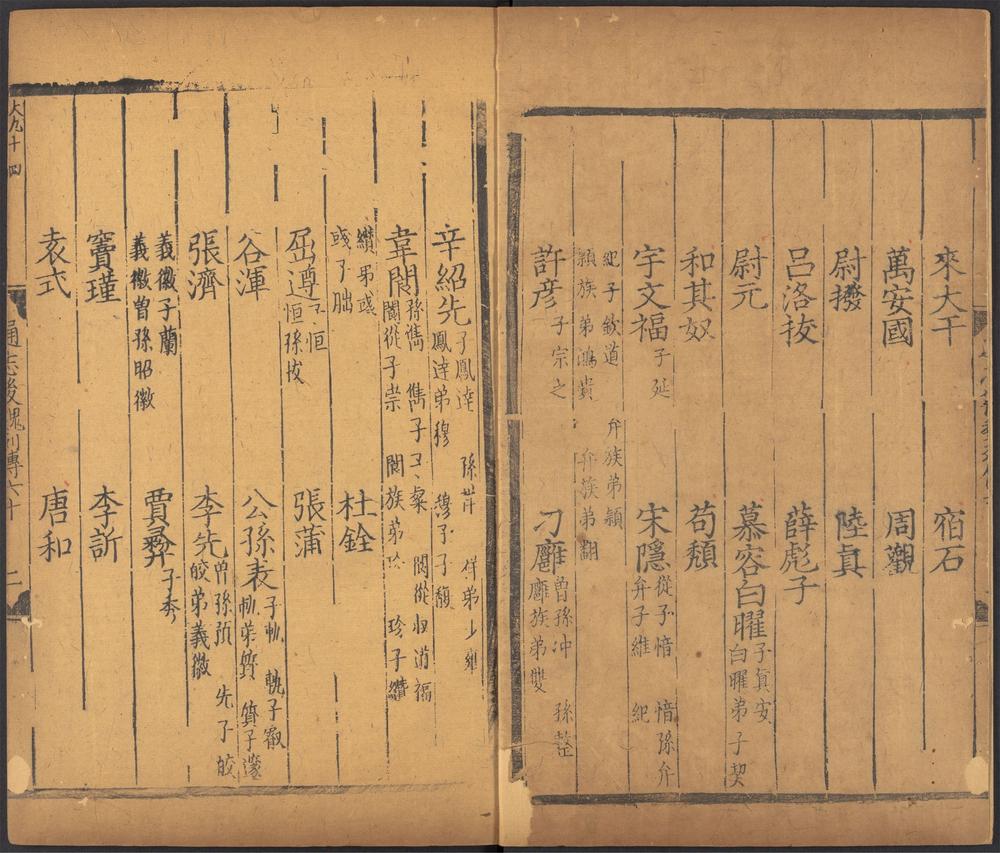 來大干 宿石
萬安國 周觀
尉撥 陸真
呂洛拔 薛彪子
尉元 慕容白曜 子真安 白曜弟子契
和其奴 苟頹
宇文福 子延 宋隱 從子愔 愔孫弁 弁子維 紀
紀子欽道 弁族弟穎 穎族弟鴻貴 弁族弟翻
許彥 子宗之 刁廱 曾孫冲 孫整 廱族弟雙
辛紹先 子鳳逹 孫祥 祥弟少雍 鳳逹弟穆 穆子子馥
韋閬 孫儁 儁子子粲 閬從叔道福 閬從子崇 閬族弟珍 珍子纘
纘弟彧 彧子朏 杜銓
屈遵 子恒 恒孫拔 張蒲
谷渾 公孫表 子軌 軌子叡 軌弟質 質子邃
張濟 李先 曾孫預 先子皎 皎弟義徽
義徽子蘭 義徽曾孫昭徽 賈彝 子秀
竇瑾 李訢
袁式 唐和
大九十四 通志後魏列傳六十 二